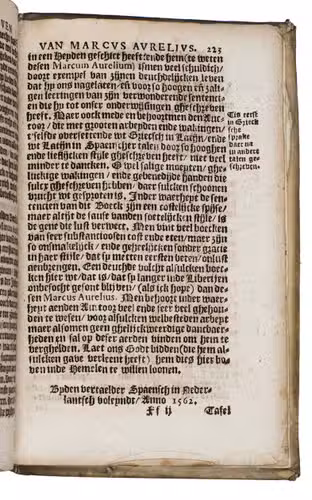 VAN MARCVS AVRELIVS. 223
in een Heyden geschict heeft: ende hem (te weten
desen Marcum Aurelium) ismen veel schuldich/
doort exempel van zijnen deuchdelijcken leven
dat hy ons nagelaten/ en voor so hoogen en zalt-
gen leeringen van zijn verwonderende sententi-
en die hy tot onser onderwijsingen gheschreven
heeft. Maer oock mede en behoortmen den Au-
toor/ die met grooten arbeyden ende wakingen/
t'selfde oversetrende wt Griesch in Latijn/ ende
wt Latijn in Spaenscher talen door so hooghen
ende lieflijcken stijle gheschreven heeft/ niet veel
minder te dancken. O wel salige moeyten/ ghe-
luckige wakingen/ ende gebenedijde handen die
sulcx gheschreven hebben/ daer sulcken schoonen
vrucht wt gesproten is. Inder waerheyt de sen-
tencien van dit Boeck zijn een costelijcke spijse/
maer alzijt de sause vanden soetelijcken stijle/ is
de gene die lust verwect. Men vint veel boecken
van seer substantioosen cost ende eten/ maer zijn
so onsmakelijck/ ende gherechten sonder gratie
in haer stijle/ dat sp meerren eer sten onlust
aenbrengen. Een deuchde volcht al sulcken boec-
ken hier wt: dat is/ dat sp langer inde Librerien
onbesocht gesont blijven/ (als ick hope) dan de-
sen Marcus Aurelius. Men behoort inder waer-
heyt aenden Autoor veel ende seer veel ghehon-
den te wesen/ voor alsulcken wel besteden arbeyt
maer alsomen geen ghelijckweerdige dancbaer-
heden en sal op deser aerden vinden om hem te
verghelden. Laet ons Godt bidden (die hem al-
sulcken gave verleent heeft) hem dies hier bo-
ven inde Hemelen te willen loonen.
Dit eerst
in Grieck
sche
sprake
daer na
in andere
talen ge-
schreven.
Byden vertaelder Spaensch in Neder-
lantsch voleyndt/ Anno 1562.
Ff ij Tafel